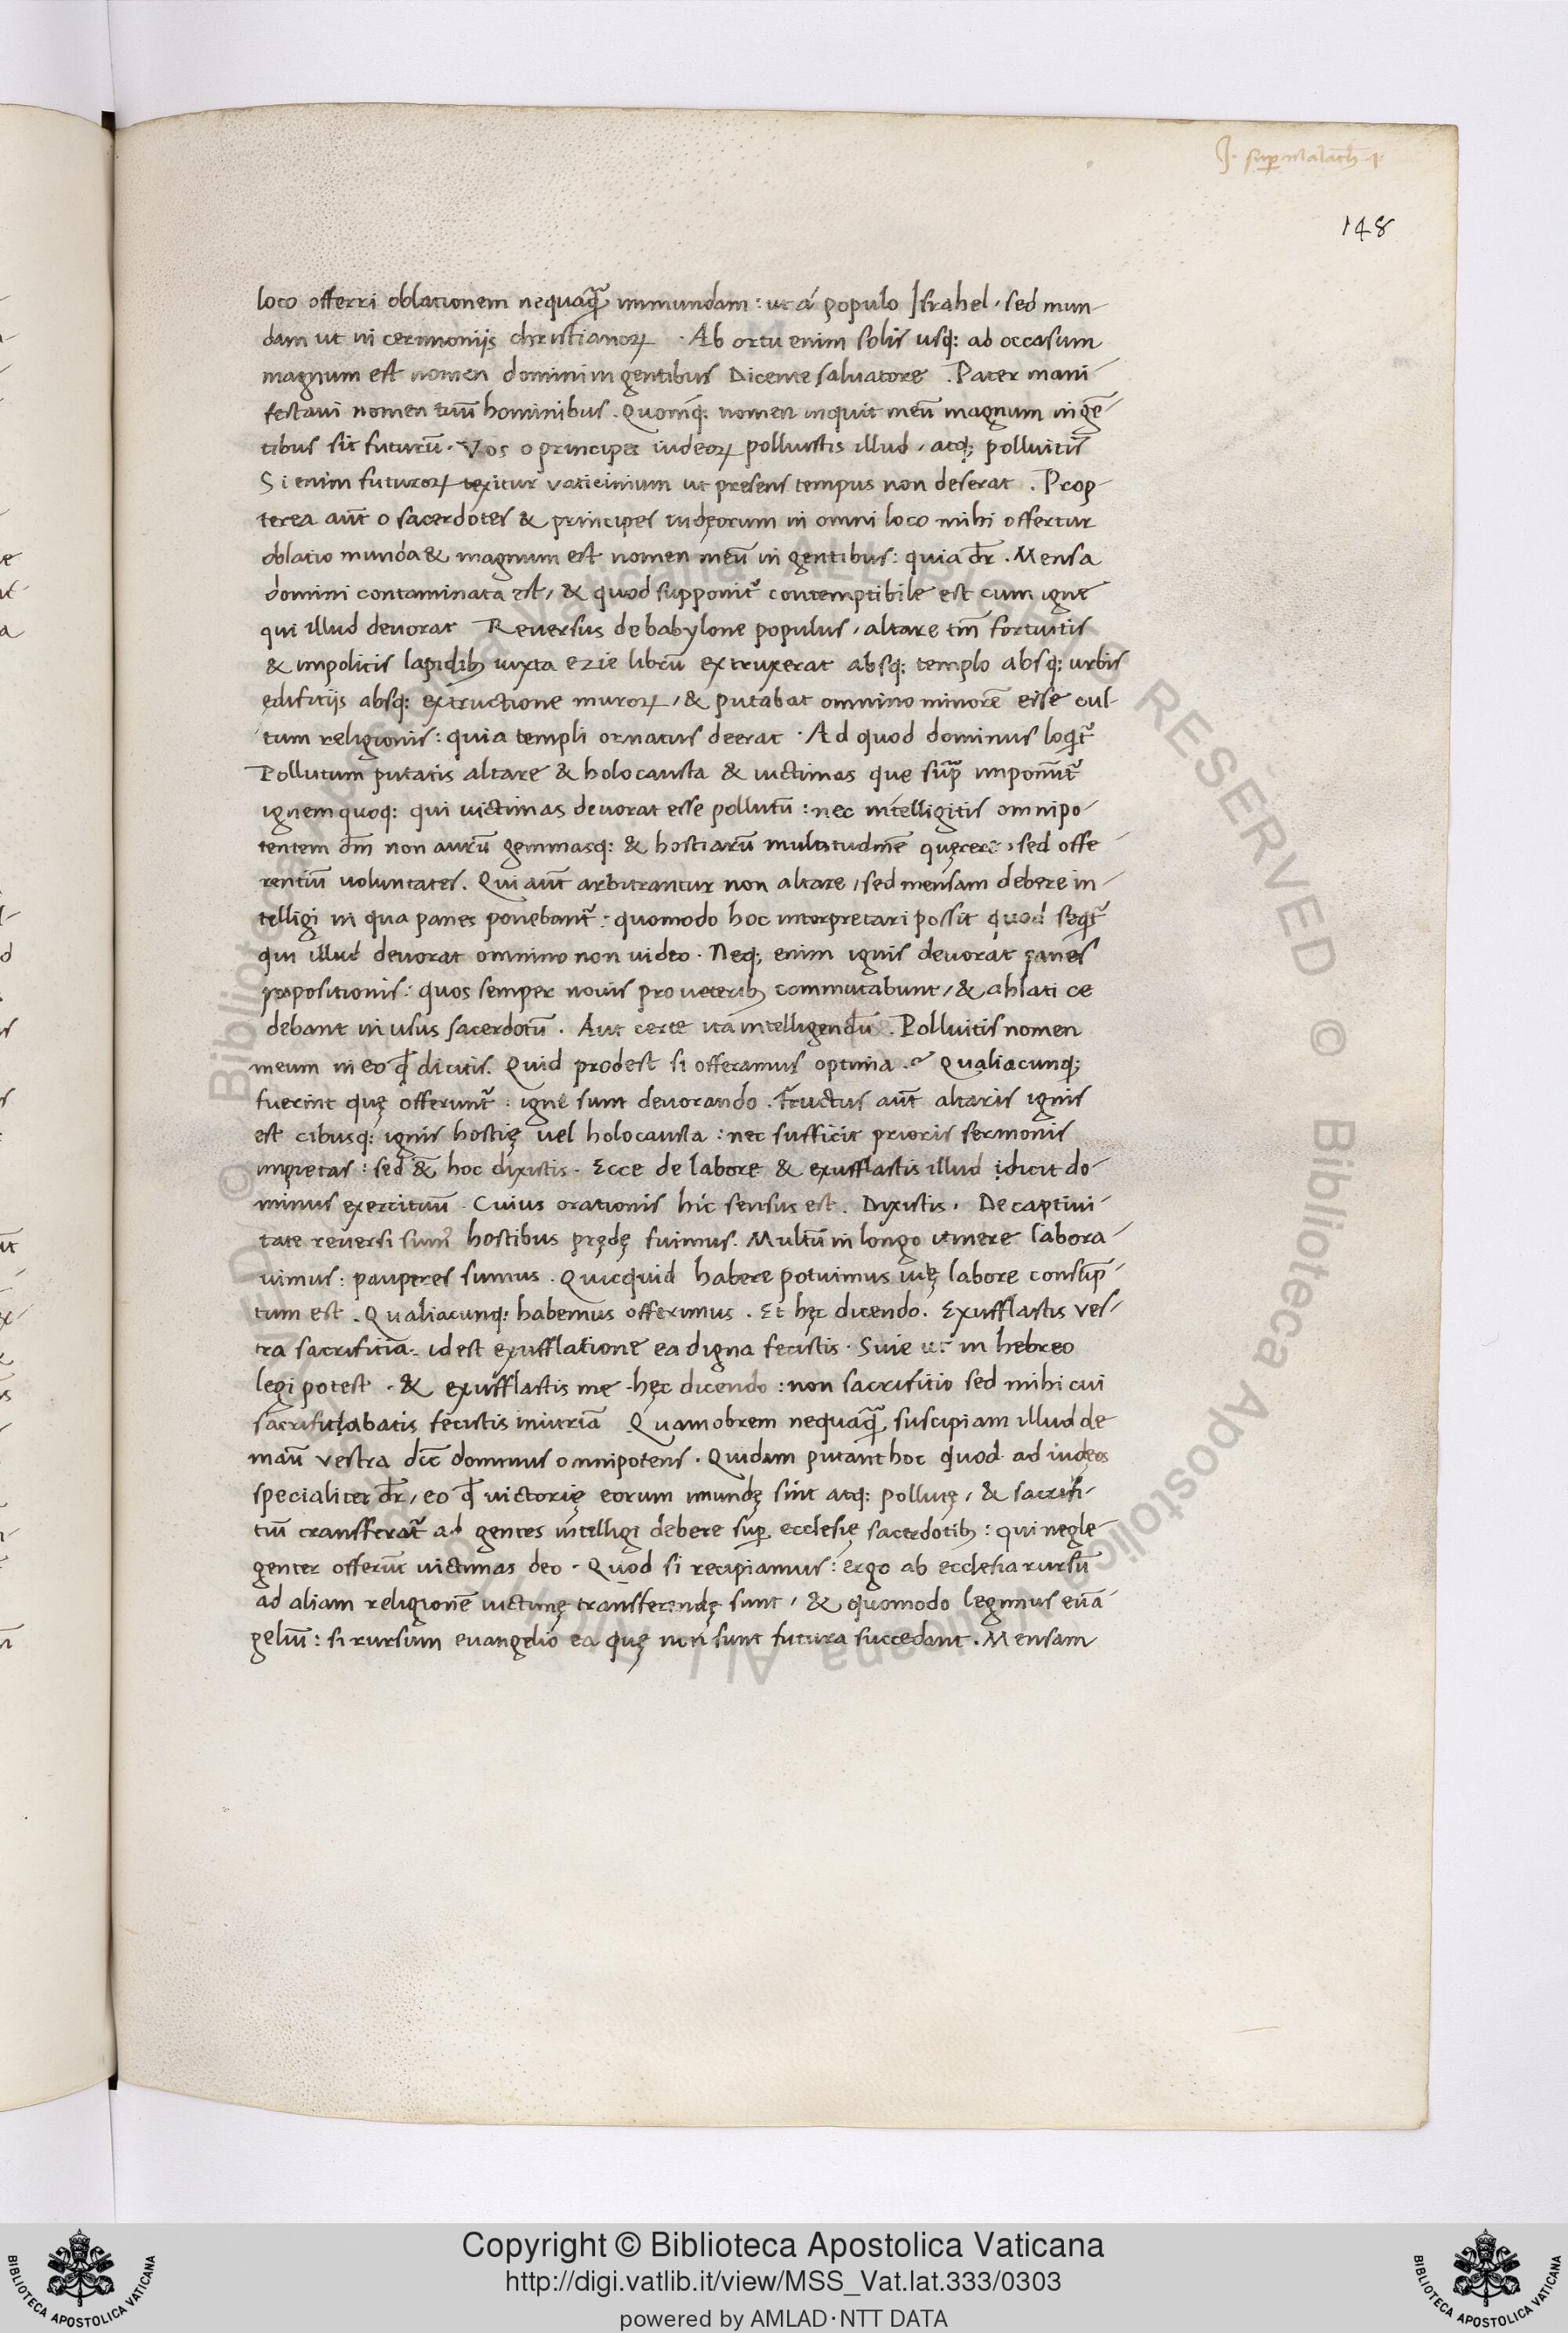 J. sup malach i
148
loco offerri oblationem nequaq̃ immundam : ut á populo Israhel, sed mun-
dam ut in cerimonijs christianoꝝ . Ab ortu enim solis usq; ab occasum
magnum est nomen domini in gentibus Dicente salvatore . Pater mani-
festavi nomen tuũ hominibus . Quomq; nomen inquit meũ magnum in gẽ-
tibus sit futurũ . Vos o principes iudeoꝝ polluistis illud , atq; polluitis
Si enim futuroꝝ texitur vaticinium ut presens tempus non deserat . Prop-
terea aũt o sacerdotes & principes iudęorum in omni loco mihi offertur
oblatio munda & magnum est nomen meũ in gentibus : quia dr̃ . Mensa
domini contaminata est, & quod supponit᷑ contemptibile est cum igne
qui illud devorat Reversus de babylone populus , altare tm̃ fortuitis
& impolitis lapidib; iuxta ezie librũ extruxerat absq; templo absq; urbis
ędifitijs absq; extructione muroꝝ , & putabat omnino minorẽ esse cul-
tum religionis : quia templi ornatus deerat . Ad quod dominus loqit᷑
Pollutum putatis altare & holocausta & victimas que sup̃ imponũt᷑
ignem quoq; qui victimas devorat esse pollutũ : nec intelligitis omnipo-
tentem dm̃ non aurũ gemmasq; & hostiarũ multitudinẽ quęrere , sed offe-
rentiũ voluntates . Qui aũt arbitrantur non altare , sed mensam debere in-
telligi in qua panes ponebant᷑ : quomodo hoc interpretari possit quod seqt᷑
qui illud devorat omnino non video . Neq; enim ignis devorat panes
propositionis : quos semper novis pro veterib; commutabunt , & ablati ce
debant in usus sacerdotũ . Aut certe ita intelligendũ . Polluitis nomen
meum in eo qđ dicitis. Quid prodest si offeramus optima .? Qualiacunq;
fuerint quę offerunt᷑ : igne sunt devorando . Fructus aũt altaris ignis
est cibusq; ignis hostię vel holocausta : nec sufficit prioris sermonis
impietas : sed & hoc dixistis . Ecce de labore & exufflastis illud dicit do-
minus exercituũ . Cuius orationis hic sensus est . Dixistis , De captivi-
tate reversi sum᷒ hostibus prędę fuimus . Multũ in longo itinere labora-
vimus : pauperes sumus . Quicquid habere potuimus vię labore consũp-
tum est . Qualiacunq; habemus offerimus . Et hęc dicendo . Exufflastis ves-
tra sacrifitia . id est exufflatione ea digna fecistis . Sive ut in hebreo
legi potest . & exufflastis me . hęc dicendo : non sacrifitio sed mihi cui
sacrifitiabatis fecistis iniuriã Quamobrem nequaq̃ suscipiam illud de
manũ vestra dic̃ dominus omnipotens . Quidam putant hoc quod ad iudęos
specialiter dr̃ , eo qđ victorię eorum imundę sint atq; pollutę , & sacrifi-
tiũ transferat᷑ ad gentes intelligi debere sup ecclesię sacerdotib; : qui negle-
genter offerũt victimas deo . Quod si recipiamus : ergo ab ecclesia rursũ
ad aliam religionẽ victimę transferendę sunt , & quomodo legimus evã-
geliũ : si rursum evangelio ea quę non sunt futura succedant . Mensam
Copyright © Biblioteca Apostolica Vaticana
http://digi.vatlib.it/view/MSS_Vat.lat.333/0303
powered by AMLAD·NTT DATA